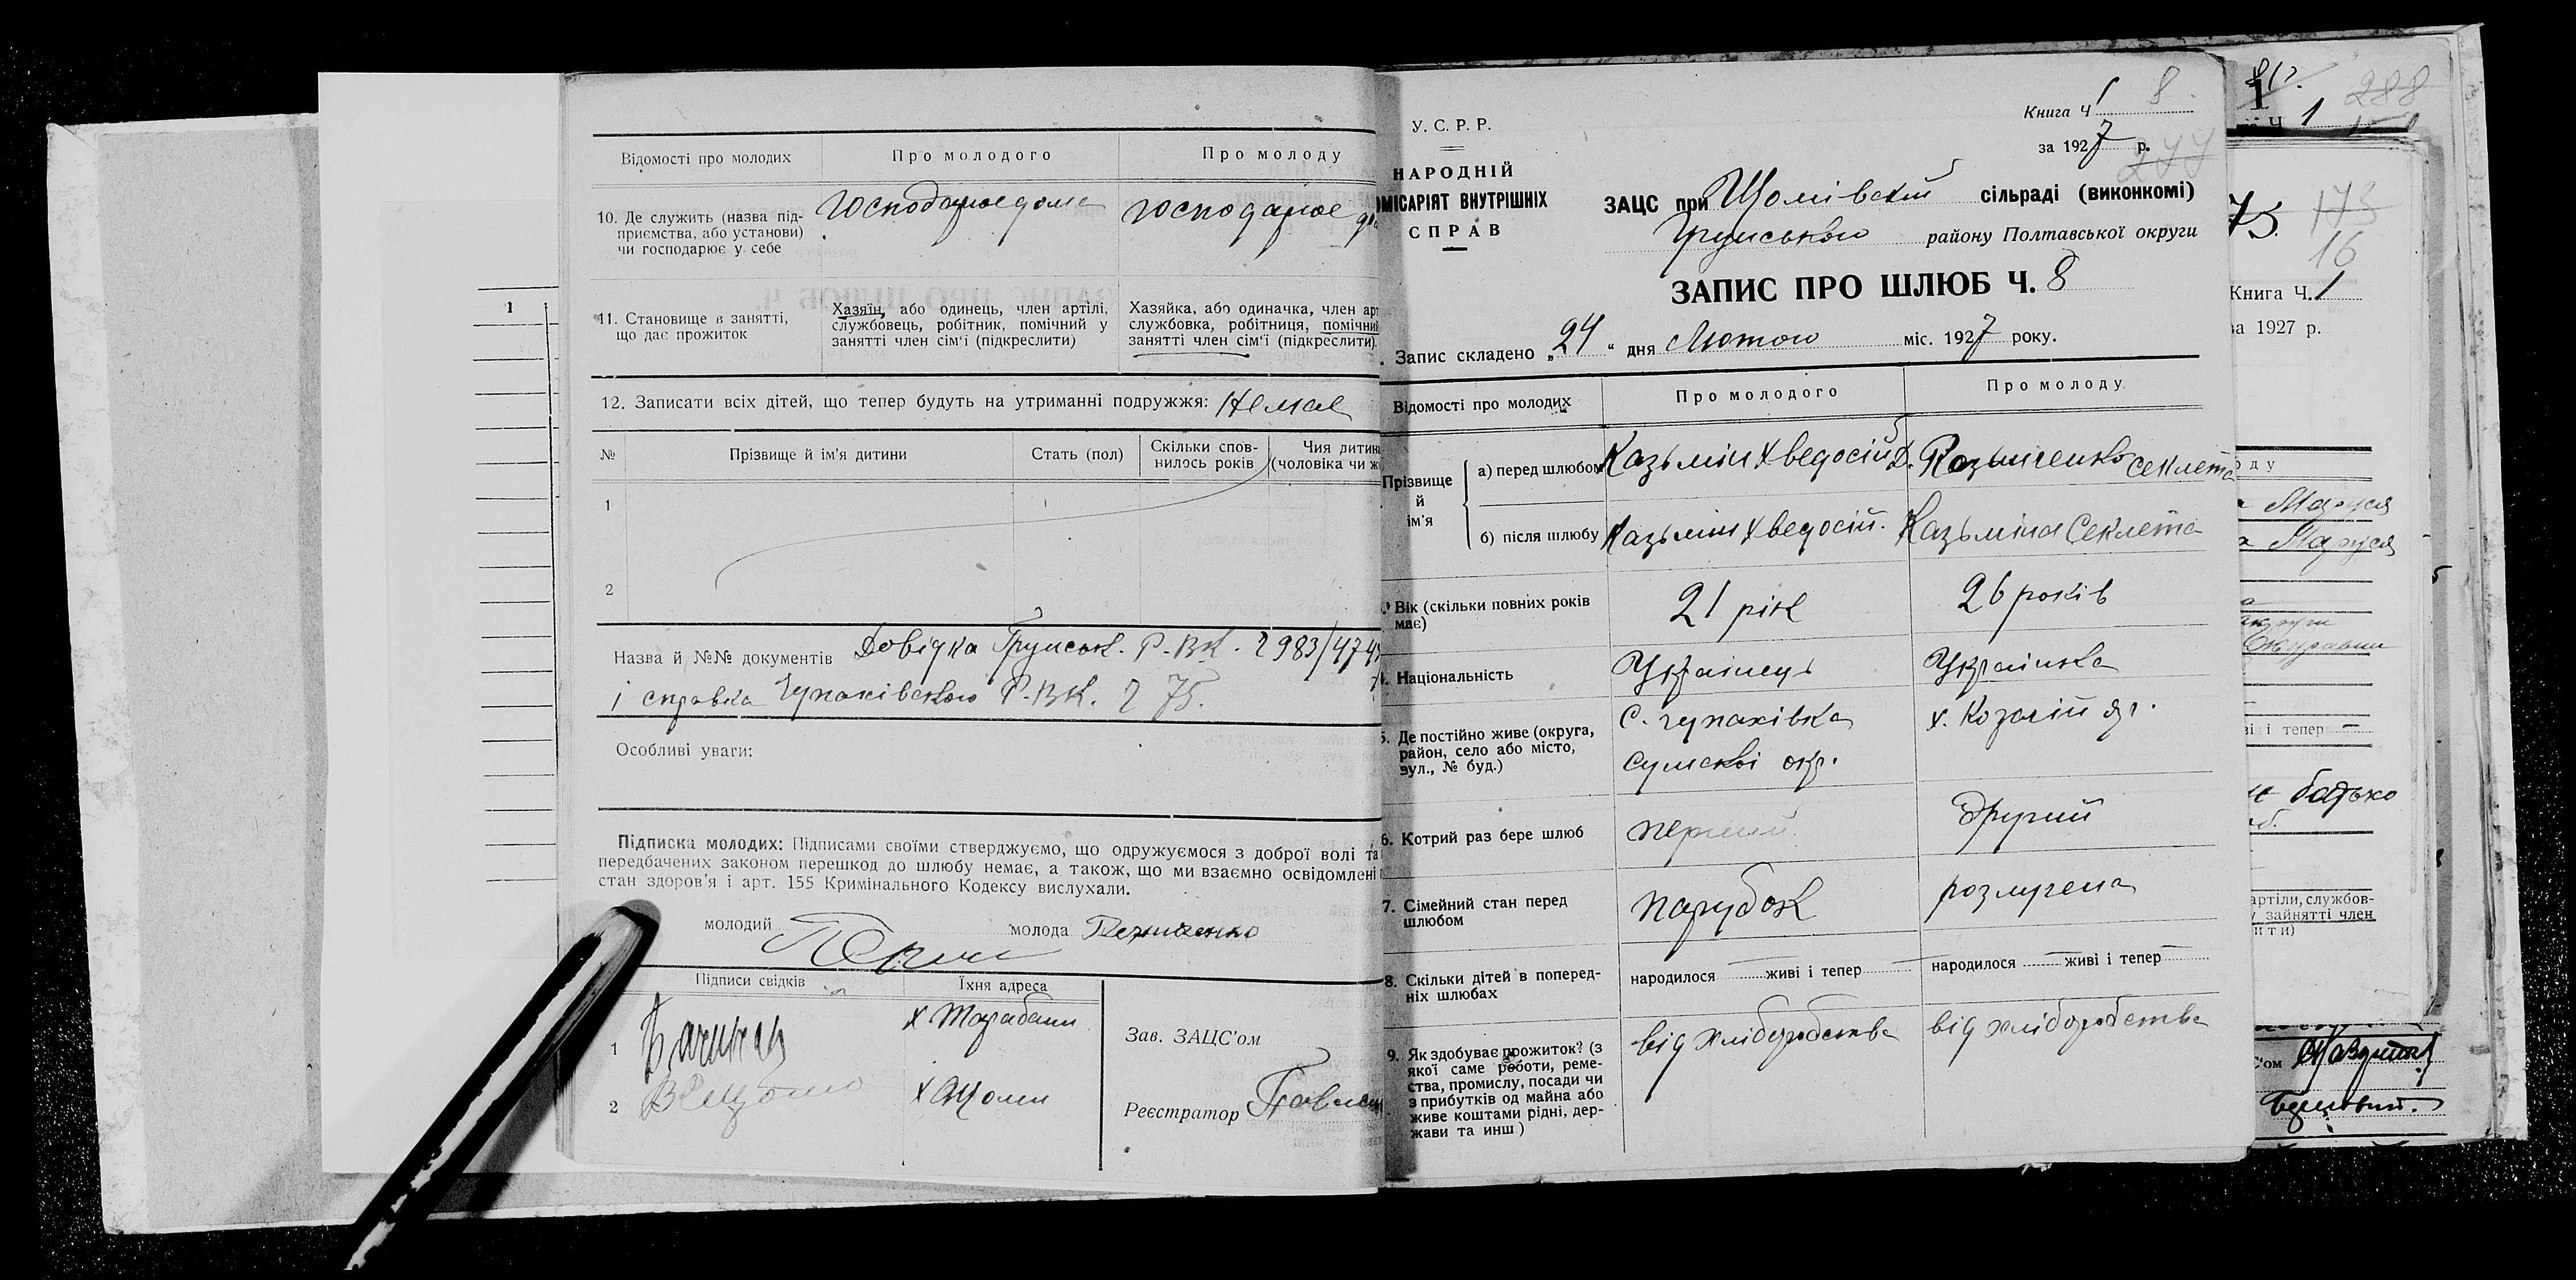 Відомості про молодих
Про молодого
Про молоду
10. Де служить (назва під-
приємства, або установи)
чи господарює у себе
господарює дома
господарює
11. Становище в занятті,
що дає прожиток
Хазяїн, або одинець, член артілі,
службовець, робітник, помічний у
занятті член сім'ї (підкреслити)
Хазяйка, або одиначка, член арт
службовка, робітниця, помічни
занятті член сім'ї (підкреслити)
12. Записати всіх дітей, що тепер будуть на утриманні подружжя: Немає
№
Прізвище й ім'я дитини
Стать (пол)
Скільки спов-
нилось років
Чия дитина
(чоловіка чи ж
1
2
Назва й №№ документів Довідка Грунськ. Р-ВК. 2983/474
і справка Чупахівського Р-ВК. 75.
Особливі уваги:
Підписка молодих: Підписами своїми стверджуємо, що одружуємося з доброї волі та
передбачених законом перешкод до шлюбу немає, а також, що ми взаємно освідомлені
стан здоров'я і арт. 155 Кримінального Кодексу вислухали.
молодий
молода
Підписи свідків
Їхня адреса
1
х Тарабани
2
х Щоми
Зав. ЗАЦС'ом
Реєстратор
У. С. Р. Р.
НАРОДНІЙ
ОМІСАРІЯТ ВНУТРІШНІХ
СПРАВ
Книга Ч 1 8
за 1927 р.
277
ЗАЦС при Щомівській сільраді (виконкомі)
Грунського району Полтавської округи
ЗАПИС ПРО ШЛЮБ Ч. 8
Запис складено „24“ дня Лютого міс. 1927 року.
Відомості про молодих
Про молодого
Про молоду
Прізвище
й
ім'я
а) перед шлюбом
Казьмін Хведосій Д.
Секлета
б) після шлюбу
Казьмін Хведосій.
Казьміна Секлета
Вік (скільки повних років
має)
21 рік
26 років
Національність
Українець
Українка
5. Де постійно живе (округа,
район, село або місто,
вул., № буд.)
с. Чупахівка
Сумської окр.
х.
6. Котрий раз бере шлюб
перший
Другий
7. Сімейний стан перед
шлюбом
парубок
розлучена
8. Скільки дітей в поперед-
ніх шлюбах
народилося живі і тепер
народилося живі і тепер
9. Як здобуває прожиток? (з
якої саме роботи, реме-
ства, промислу, посади чи
з прибутків од майна або
живе коштами рідні, дер-
жави та инш)
від хліборобства
від хліборобства
1
288
75
173
16
Книга Ч. 1
за 1927 р.
Маруся
Маруся
ві і тепер
батько
артіли, службов-
у зайнятті член
1